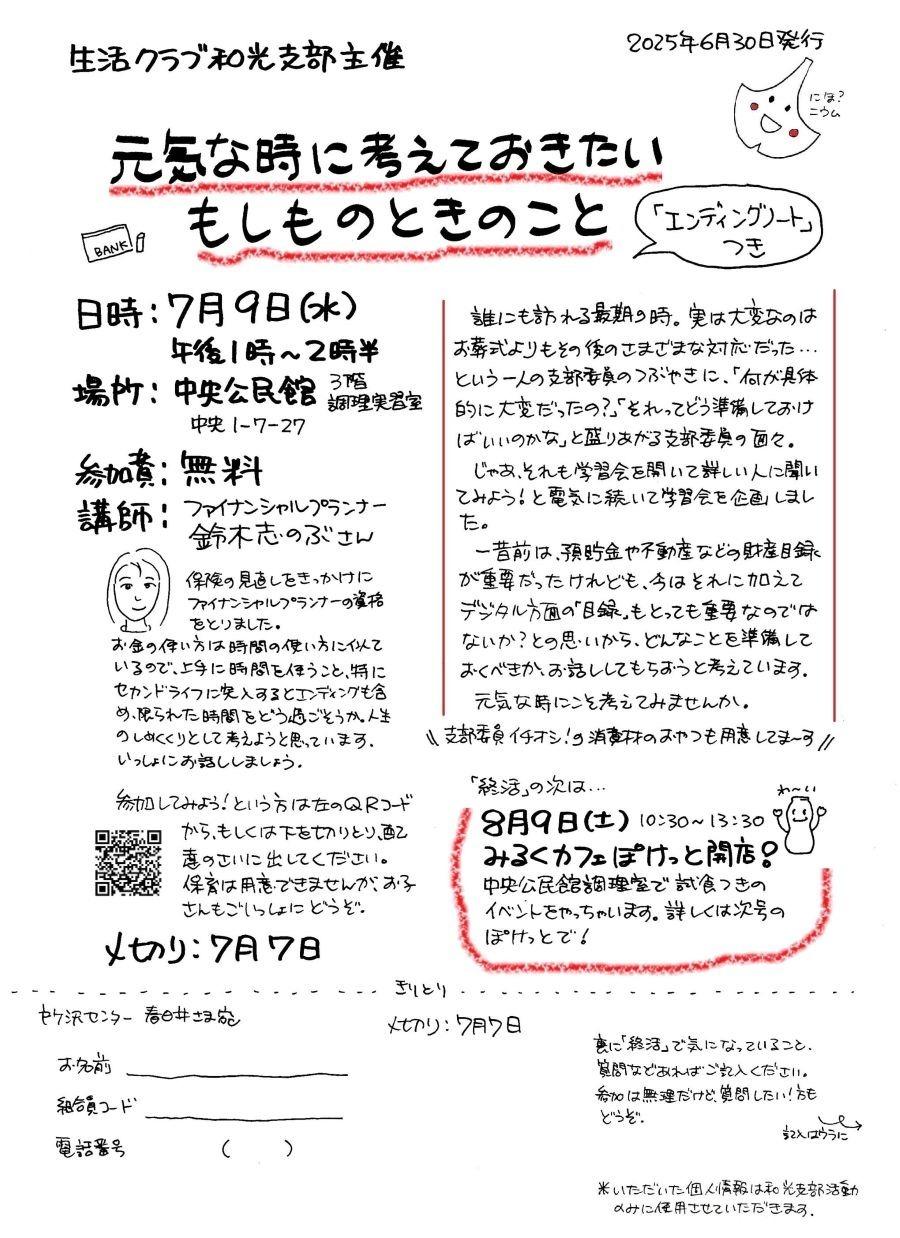 生活クラブ和光支部主催
2025年6月30日発行
にほ?
ニウム
元気な時に考えておきたい
もしものときのこと
「エンディングノート」
つき
BANK
日時：7月9日(水)
午後1時～2時半
場所：中央公民館 3階
調理実習室
中央1-7-27
参加費：無料
講師：ファイナンシャルプランナー
鈴木志のぶさん
保険の見直しをきっかけに
ファイナンシャルプランナーの資格
をとりました。
お金の使い方は時間の使い方に似て
いるので、上手に時間を使うこと、特に
セカンドライフに突入するとエンディングも含
め、限られた時間をどう過ごそうか。人生
のしめくくりとして考えようと思っています。
いっしょにお話ししましょう。
参加してみよう！という方は左のQRコード
から、もしくは下を切りとり、配
達のさいに出してください。
保育は用意できませんが、お子
さんもごいっしょにどうぞ。
〆切り：7月7日
誰にも訪れる最期の時。実は大変なのは
お葬式よりもその後のさまざまな対応だった…
という一人の支部委員のつぶやきに、「何が具体
的に大変だったの？」「それってどう準備しておけ
ばいいのかな」と盛りあがる支部委員の面々。
じゃあ、それも学習会を開いて詳しい人に聞い
てみよう！と電気に続いて学習会を企画しまし
た。
一昔前は、預貯金や不動産などの財産目録
が重要だったけれども、今はそれに加えて
デジタル方面の「目録」もとっても重要なのでは
ないか？との思いから、どんなことを準備して
おくべきか、お話ししてもらおうと考えています。
元気な時にこそ考えてみませんか。
\\支部委員イチオシ！の消費材のおやつも用意してま～す//
「終活」の次は…
わ～い
8月9日(土) 10:30～13:30
みるくカフェぽけっと開店！
中央公民館調理室で試食つきの
イベントをやっちゃいます。詳しくは次号の
ぽけっとで！
きりとり
セケ沢センター 春日井さま宛
〆切り：7月7日
お名前
組合員コード
電話番号 ( )
裏に「終活」で気になっていること、
質問などあればご記入ください。
参加は無理だけど、質問したい！方も
どうぞ。
記入はウラに
※いただいた個人情報は和光支部活動
のみに使用させていただきます。